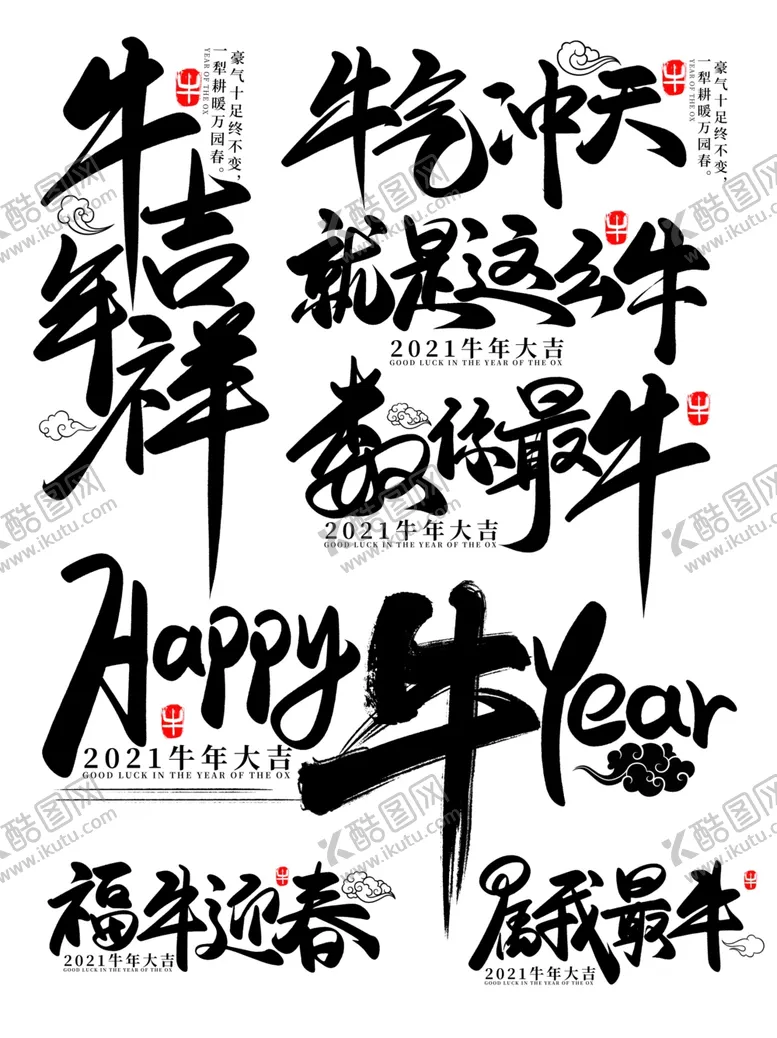 牛年吉祥
豪气十足终不变，
一犁耕暖万园春。
YEAR OF THE OX
牛
牛气冲天
豪气十足终不变，
一犁耕暖万园春。
YEAR OF THE OX
牛
就是这么牛
牛
2021牛年大吉
GOOD LUCK IN THE YEAR OF THE OX
数你最牛
牛
2021牛年大吉
GOOD LUCK IN THE YEAR OF THE OX
Happy 牛 Year
牛
2021牛年大吉
GOOD LUCK IN THE YEAR OF THE OX
福牛迎春
牛
2021牛年大吉
GOOD LUCK IN THE YEAR OF THE OX
属我最牛
牛
2021牛年大吉
GOOD LUCK IN THE YEAR OF THE OX
酷图网
www.ikutu.com